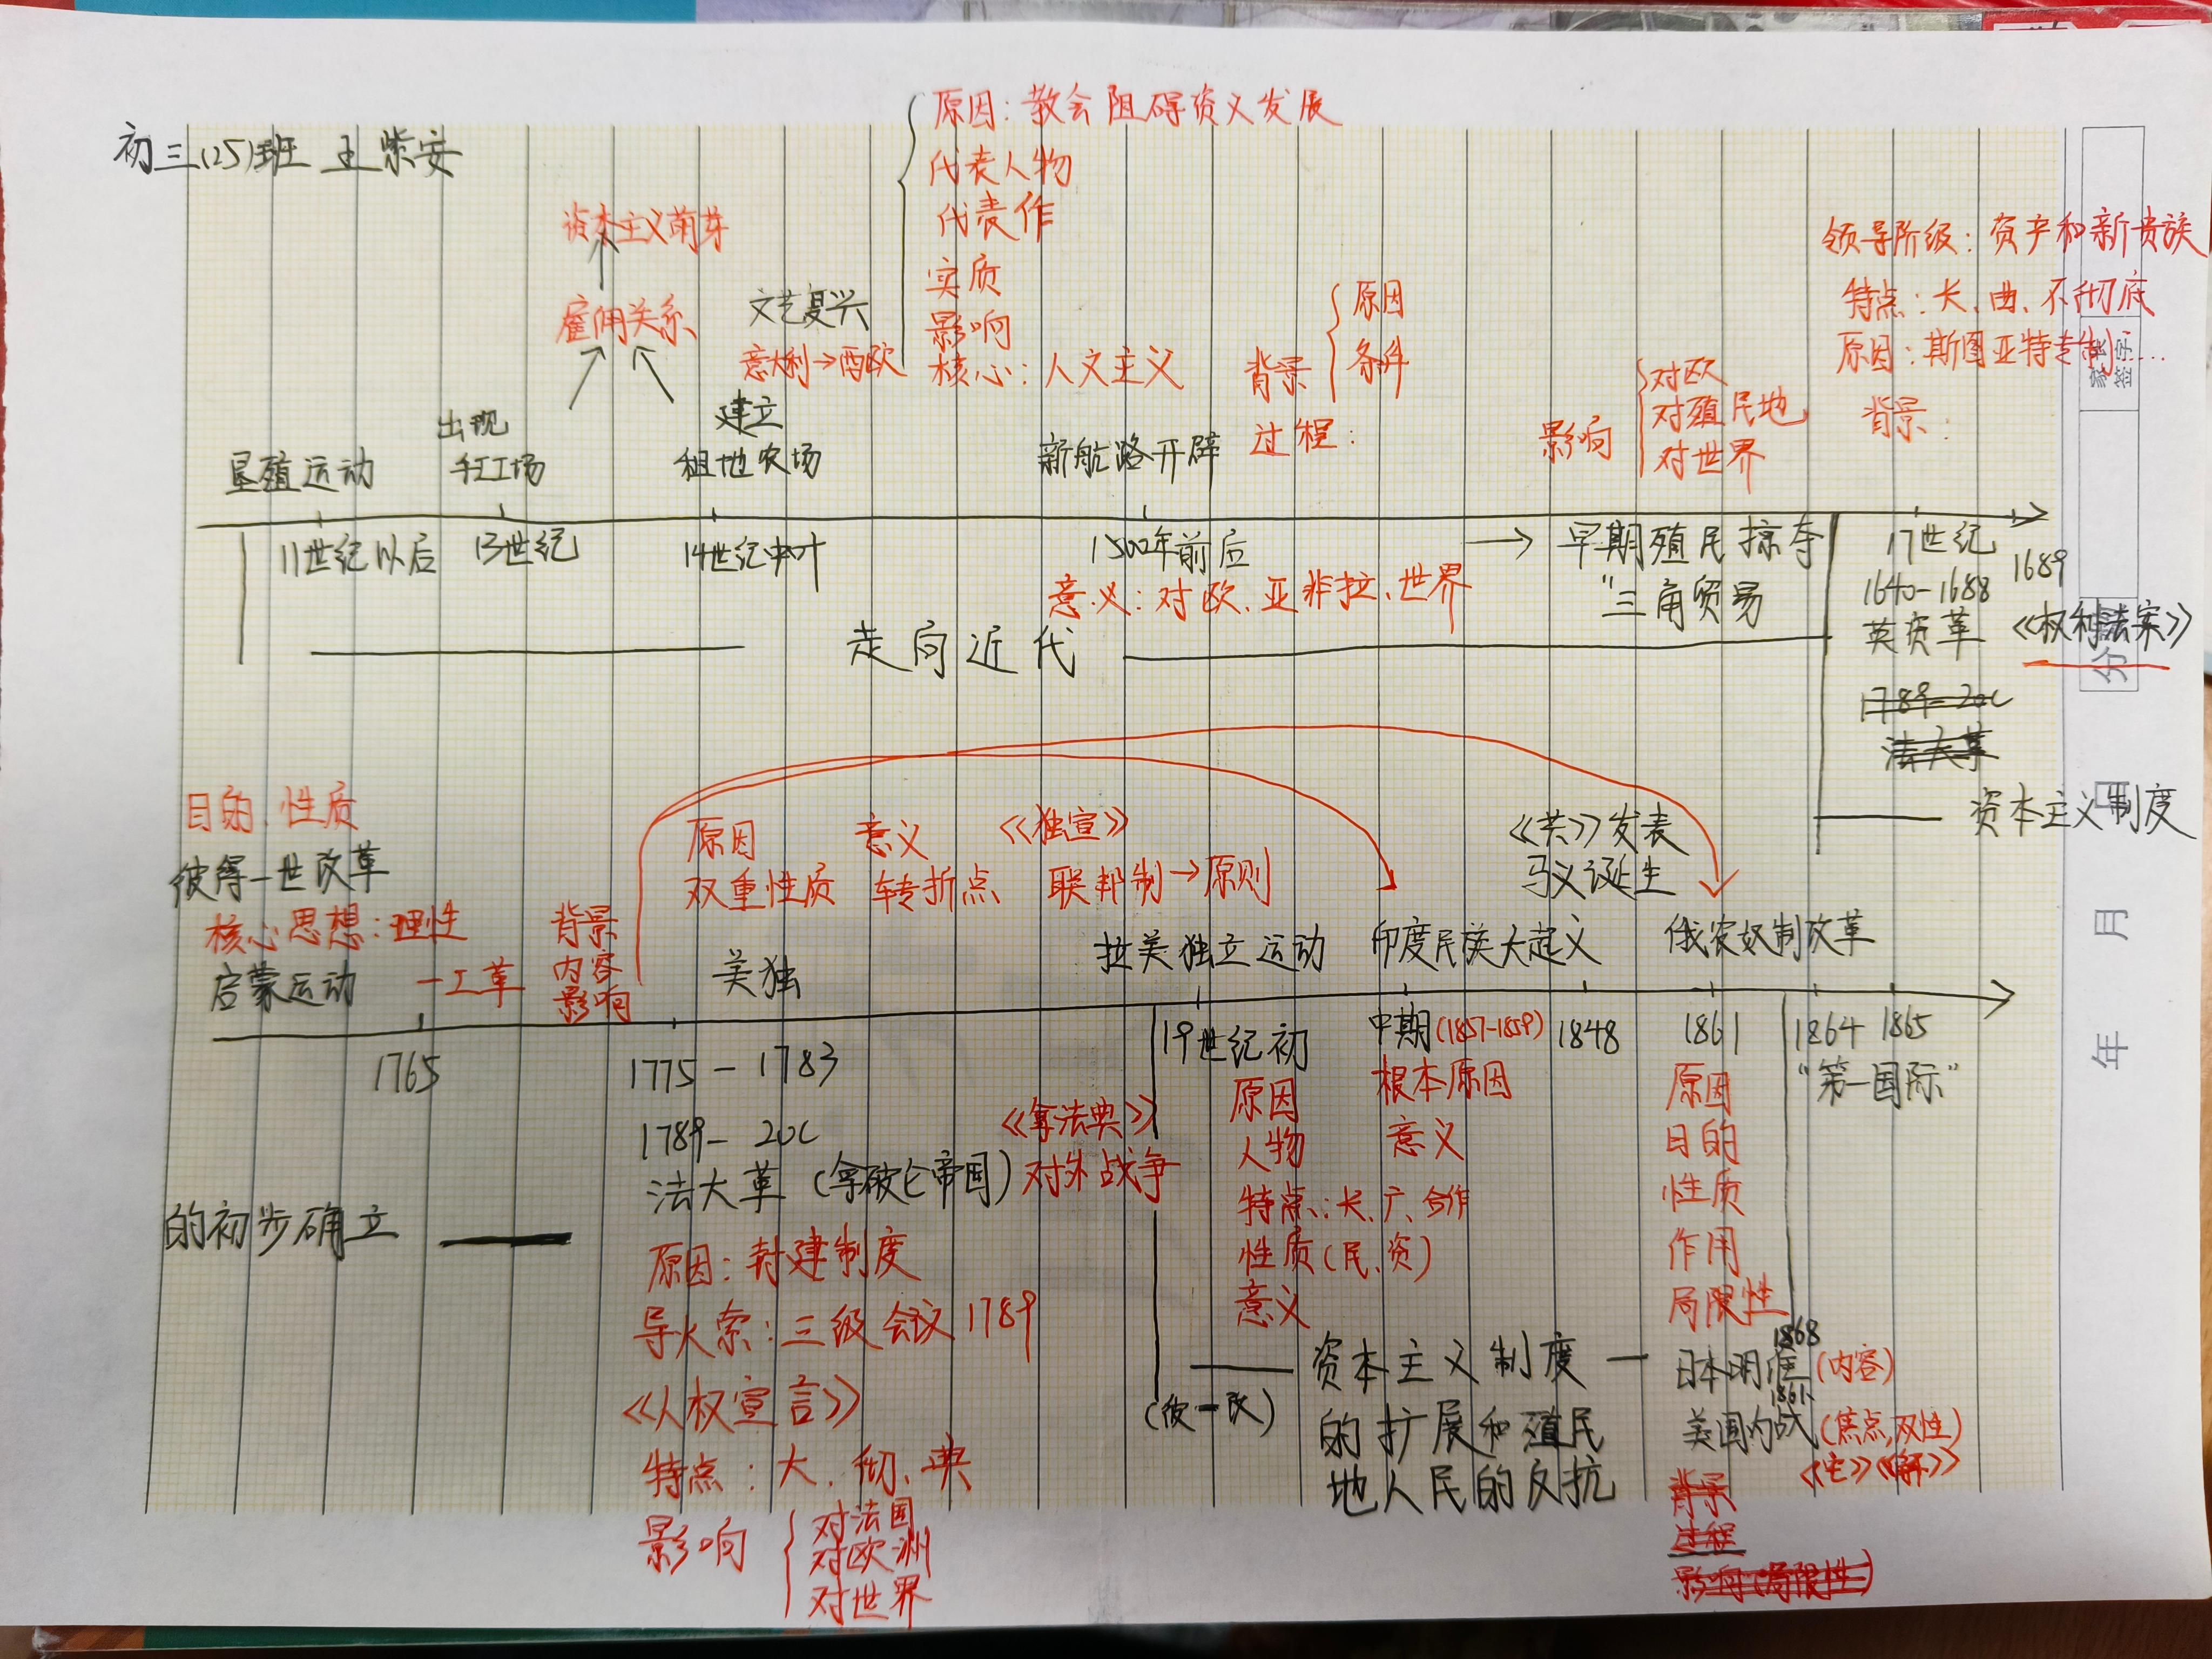 初三(25)班 王紫安
原因：教会阻碍资义发展
代表人物
代表作
实质
影响
核心：人文主义
资本主义萌芽
雇佣关系
文艺复兴
意大利→西欧
背景
原因
条件
过程：
影响
对欧
对殖民地
对世界
领导阶级：资产和新贵族
特点：长、曲、不彻底
原因：斯图亚特专制……
背景：
垦殖运动
出现
手工工场
建立
租地农场
新航路开辟
11世纪以后
13世纪
14世纪中叶
1500年前后
→ 早期殖民掠夺
"三角贸易
意义：对欧、亚非拉、世界
17世纪
1640-1688
英资革
1689
《权利法案》
走向近代
1789-20C
法大革
资本主义制度
签字
分
年 月 日
目的、性质
彼得一世改革
核心思想：理性
启蒙运动
一工革
背景
内容
影响
原因 意义 《独宣》
双重性质 转折点 联邦制→原则
美独
拉美独立运动
印度民族大起义
《共》发表
马义诞生
俄农奴制改革
1765
1775-1783
1789-20C
法大革（拿破仑帝国）
《拿法典》
对外战争
原因：封建制度
导火索：三级会议 1789
《人权宣言》
特点：大、彻、典
影响
对法国
对欧洲
对世界
的初步确立
19世纪初
原因
人物
特点：长、广、合作
性质（民、资）
意义
中期(1857-1859)
根本原因
意义
1848
1861
原因
目的
性质
作用
局限性
1864 1865
"第一国际"
（彼一改）
资本主义制度
的扩展和殖民
地人民的反抗
1868
日本明维（内容）
1861
美国内战（焦点，双性）
《宅》《解》
背景
过程
影响（局限性）